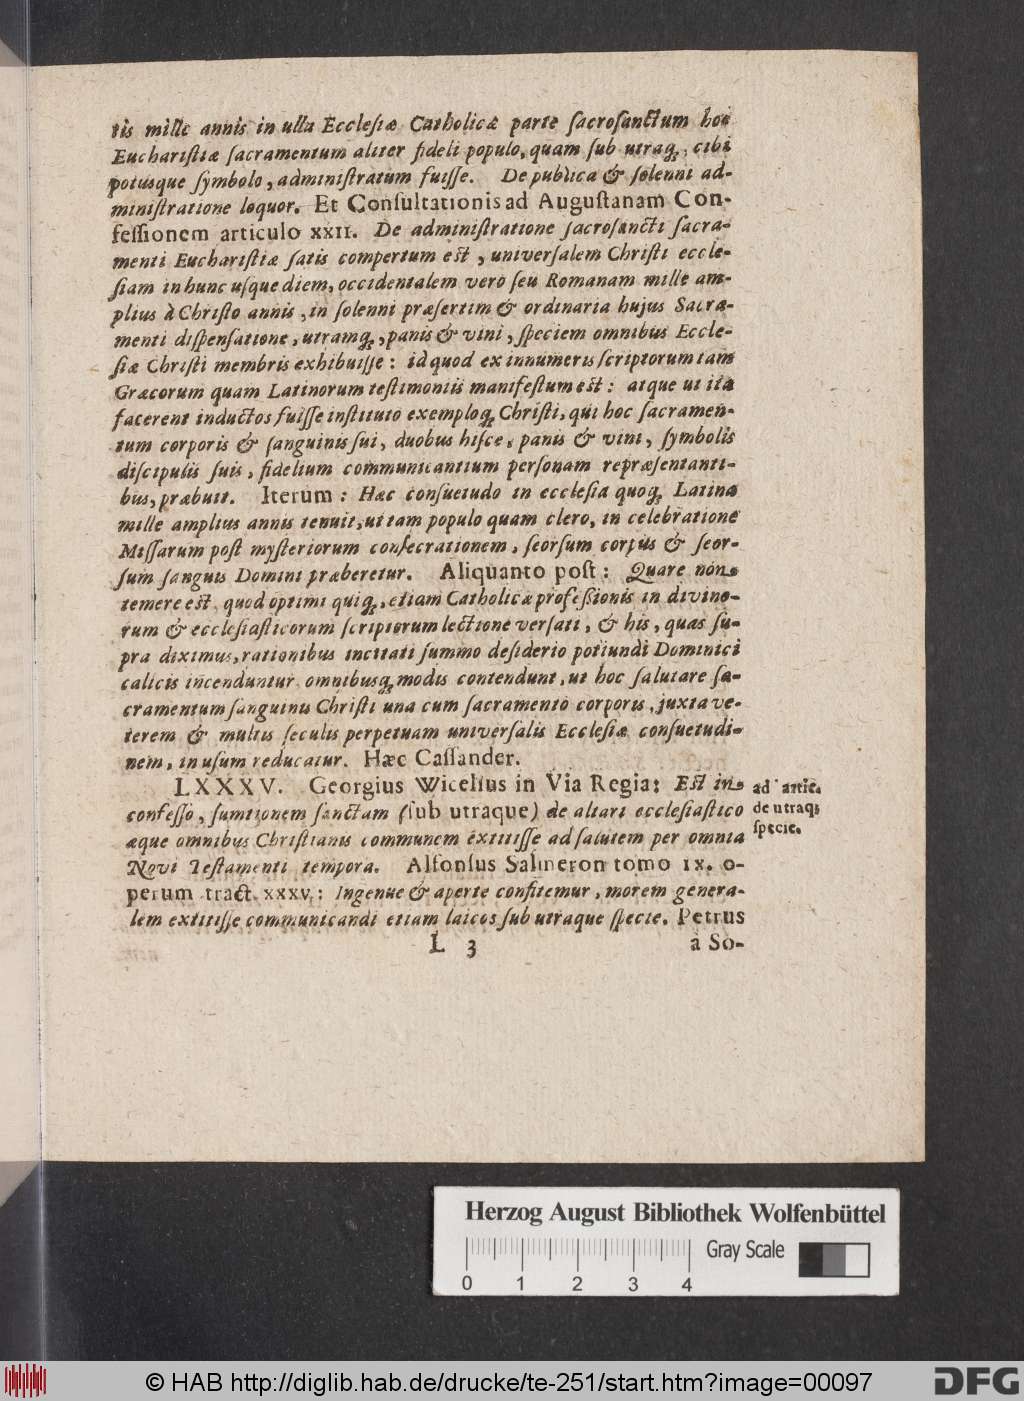 tis mille annis in ulla Ecclesiæ Catholicæ parte sacrosanctum hoc
Eucharistiæ sacramentum aliter fideli populo, quam sub utraq;, cibi
potusque symbolo, administratum fuisse. De publica & solenni ad-
ministratione loquor. Et Consultationis ad Augustanam Con-
fessionem articulo XXII. De administratione sacrosancti sacra-
menti Eucharistiæ satis compertum est, universalem Christi eccle-
siam in hunc usque diem, occidentalem vero seu Romanam mille am-
plius à Christo annis, in solenni præsertim & ordinaria hujus Sacra-
menti dispensatione, utramq;, panis & vini, speciem omnibus Eccle-
siæ Christi membris exhibuisse: id quod ex innumeris scriptorum tam
Græcorum quam Latinorum testimoniis manifestum est: atque ut ita
facerent inductos fuisse instituto exemploq; Christi, qui hoc sacramen-
tum corporis & sanguinis sui, duobus hisce, panis & vini, symbolis
discipulis suis, fidelium communicantium personam repræsentanti-
bus, præbuit. Iterum: Hæc consuetudo in ecclesia quoq; Latina
mille amplius annis tenuit, ut tam populo quam clero, in celebratione
Missarum post mysteriorum consecrationem, seorsum corpus & seor-
sum sanguis Domini præberetur. Aliquanto post: Quare non
temere est, quod optimi quiq;, etiam Catholicæ professionis in divino-
rum & ecclesiasticorum scriptorum lectione versati, & his, quas su-
pra diximus, rationibus incitati summo desiderio potiundi Dominici
calicis incenduntur, omnibusq; modis contendunt, ut hoc salutare sa-
cramentum sanguinis Christi una cum sacramento corporis, juxta ve-
terem & multis seculis perpetuam universalis Ecclesiæ consuetudi-
nem, in usum reducatur. Hæc Cassander.
LXXXV. Georgius Wicelius in Via Regia: Est in
confesso, sumtionem sanctam (sub utraque) de altari ecclesiastico
æque omnibus Christianis communem extitisse ad salutem per omnia
Novi Testamenti tempora. Alfonsus Salmeron tomo IX. o-
perum tract. XXXV.: Ingenue & aperte confitemur, morem genera-
lem extitisse communicandi etiam laicos sub utraque specie. Petrus
L 3 à So-
ad artic.
de utraq;
specie.
Herzog August Bibliothek Wolfenbüttel
Gray Scale
0 1 2 3 4
© HAB http://diglib.hab.de/drucke/te-251/start.htm?image=00097
DFG